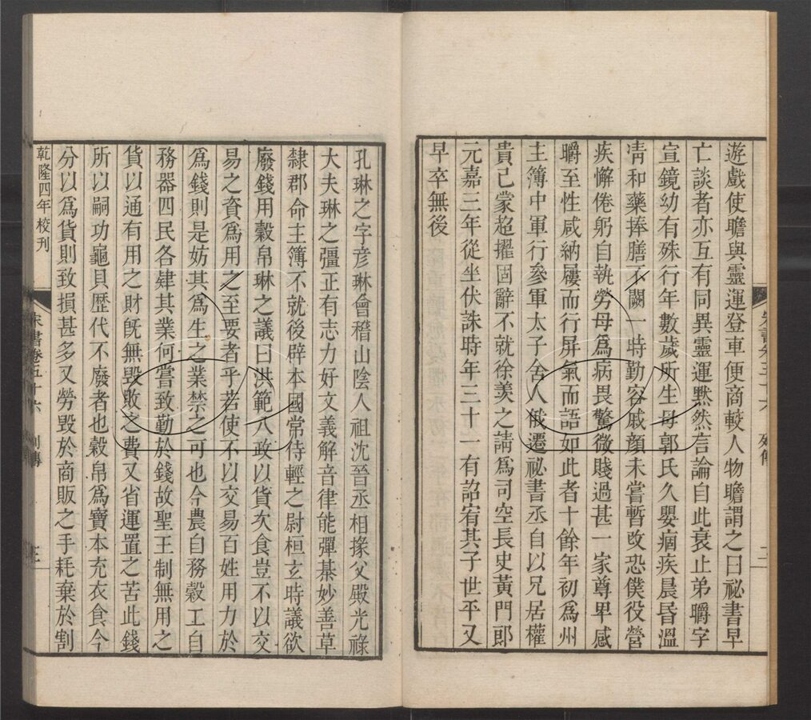 遊戲使瞻與靈運登車便商較人物瞻謂之曰祕書早
亡談者亦互有同異靈運黙然言論自此衰止弟㬭字
宣鏡幼有殊行年數歲所生母郭氏久嬰痼疾晨昏溫
凊和藥捧膳不闕一時勤容戚顔未嘗暫改恐僕役營
疾懈倦躬自執勞母爲病畏驚微賤過甚一家尊卑感
㬭至性咸納屨而行屏氣而語如此者十餘年初爲州
主簿中軍行參軍太子舍人俄遷祕書丞自以兄居權
貴已蒙超擢固辭不就徐羨之請爲司空長史黃門郎
元嘉三年從坐伏誅時年三十一有詔宥其子世平又
早卒無後
孔琳之字彦琳會稽山陰人祖沈晉丞相掾父殿光祿
大夫琳之彊正有志力好文義解音律能彈棊妙善草
隸郡命主簿不就後辟本國常侍輕之尉桓玄時議欲
廢錢用穀帛琳之議曰洪範八政以貨次食豈不以交
易之資爲用之至要者乎若使不以交易百姓用力於
爲錢則是妨其爲生之業禁之可也今農自務穀工自
務器四民各肄其業何嘗致勤於錢故聖王制無用之
貨以通有用之財旣無毀敗之費又省運置之苦此錢
所以嗣功龜貝歷代不廢者也穀帛爲寶本充衣食今
分以爲貨則致損甚多又勞毀於商販之手耗棄於割
乾隆四年校刊
宋書卷五十六 列傳